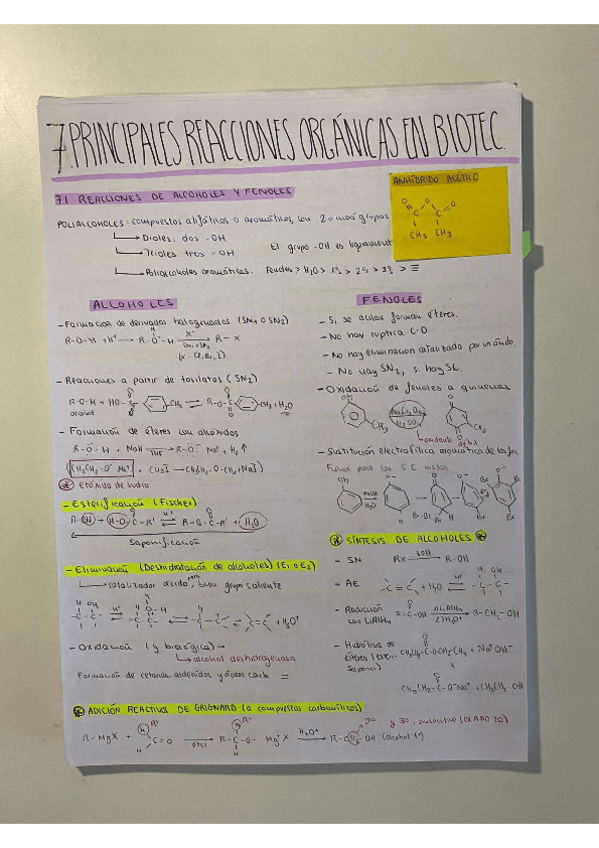 7. PRINCIPALES REACCIONES ORGÁNICAS EN BIOTEC.
7.1 REACCIONES DE ALCOHOLES Y FENOLES
ANHÍDRIDO ACÉTICO
CH3 CH3
POLIALCOHOLES: compuestos alifáticos o aromáticos, con 2 o más grupos
Dioles: dos -OH
Trioles tres -OH
El grupo -OH es ligeramente
Polialcoholes aromáticos. Fenoles > H2O > 1º > 2º > 3º > ≡
ALCOHOLES
- Formación de derivados halogenados (SN1 o SN2)
R-O-H + H+ → R-O-H X- → R-X
- Reacciones a partir de tosilatos (SN2)
alcohol
- Formación de éteres con alcóxidos
R-O-H + NaH → THF R-O- Na+ + H2↑
CH3CH2-O- Na+ + CH3I → CH3CH2-O-CH3 + NaI
Etóxido de sodio
- Esterificación (Fischer)
R-OH + H-O-C-R' ⇌ R-O-C-R' + H2O
Saponificación
- Eliminación (Deshidratación de alcoholes) (E1 o E2)
catalizador ácido, grupo saliente
+ H3O+
- Oxidación (y biológica) →
alcohol deshidrogenasa
Formación de cetonas, aldehídos y ácidos carb
FENOLES
- Si se acilan forman ésteres.
- No hay ruptura C-O
- No hay eliminación catalizada por un ácido.
- No hay SN2, si hay SE.
- Oxidación de fenoles a quinonas
OH
CH3
H2SO4
CH3
oxidante
- Sustitución electrofílica aromática de los fen
H2O
SÍNTESIS DE ALCOHOLES
- SN RX → R-OH
- AE C=C + H2O ⇌ H+
- Reducción con LiAlH4 R-C-OH → R-CH2-OH
1) LiAlH4
2) H3O+
- Hidrólisis de ésteres CH3CH2-C-OCH2CH3 + Na+OH-
CH3CH2-C-O-Na+ + CH3CH2-OH
ADICIÓN REACTIVOS DE GRIGNARD (a compuestos carbonílicos)
2º y 3º,
R-MgX + C=O → R-C-O- Mg+X H3O+ → R-C-OH (alcohol 1º)